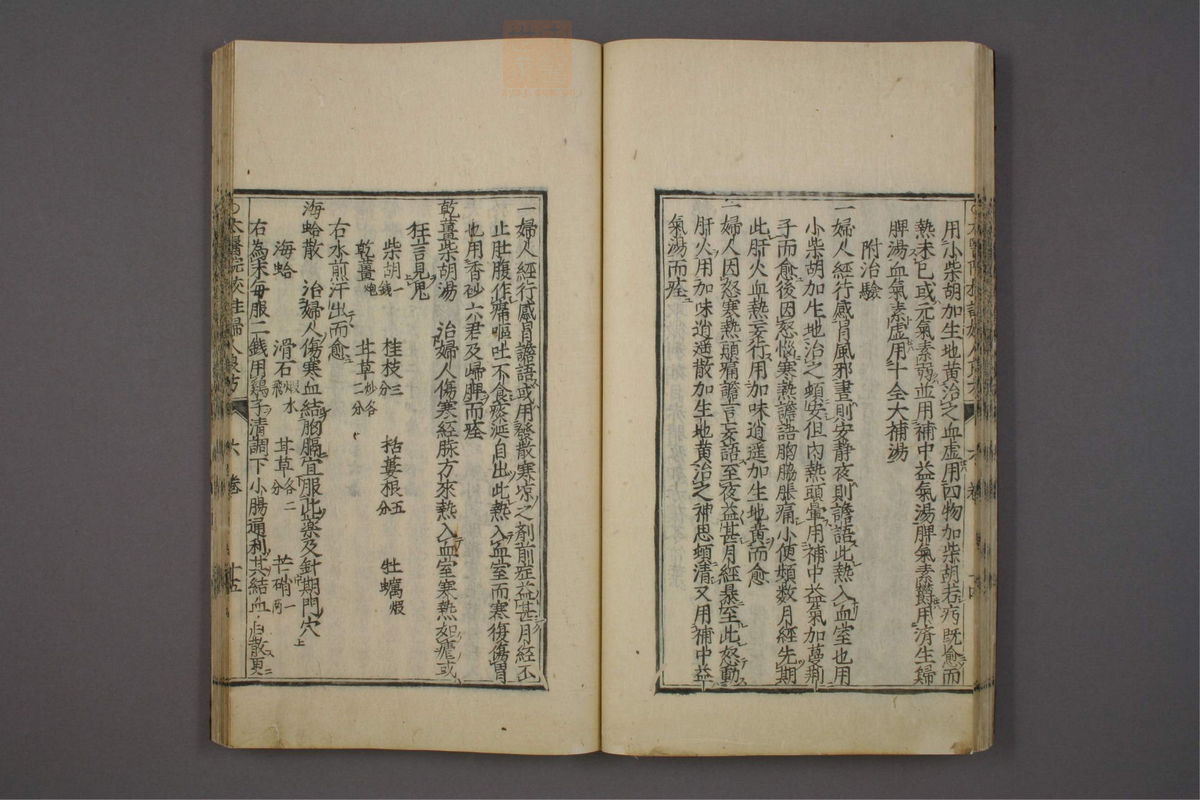 用小柴胡加生地黄治之血虚用四物加柴胡若病既愈而
熱未已或元氣素弱並用補中益氣湯脾氣素欝用済生歸
脾湯血氣素虚用十全大補湯
附治驗
一婦人經行感冒風邪晝則安静夜則譫語此熱入血室也用
小柴胡加生地治之頓安但内熱頭暈用補中益氣加蔓荊
子而愈後因怒惱寒熱譫語胸脇脹痛小便頻数月經先期
此肝火血熱妄行用加味逍遥加生地黄而愈
一婦人因怒寒熱頭痛譫言妄語至夜益甚月經暴至此怒動
肝火用加味逍遥散加生地黄治之神思頓清又用補中益
氣湯而痊
一婦人經行感冒譫語或用發散寒凉之剤前症益甚月經不
止肚腹作痛嘔吐不食痰涎自出此熱入血室而寒復傷胃
也用香砂六君及歸脾而痊
乾薑柴胡湯 治婦人傷寒經脉方來熱入血室寒熱如瘧或
狂言見鬼
柴胡一錢 桂枝三分 括蔞根五分 牡蠣煅
乾薑炮 甘草炒各二分
右水煎汗出而愈
海蛤散 治婦人傷寒血結胸膈宜服此薬及針期門穴上
海蛤 滑石煅水飛 甘草各二分 芒硝一兩
右為末毎服二錢用鷄子清調下小腸通利其結血自散更
○太醫院校註婦人良方 六巻 十五